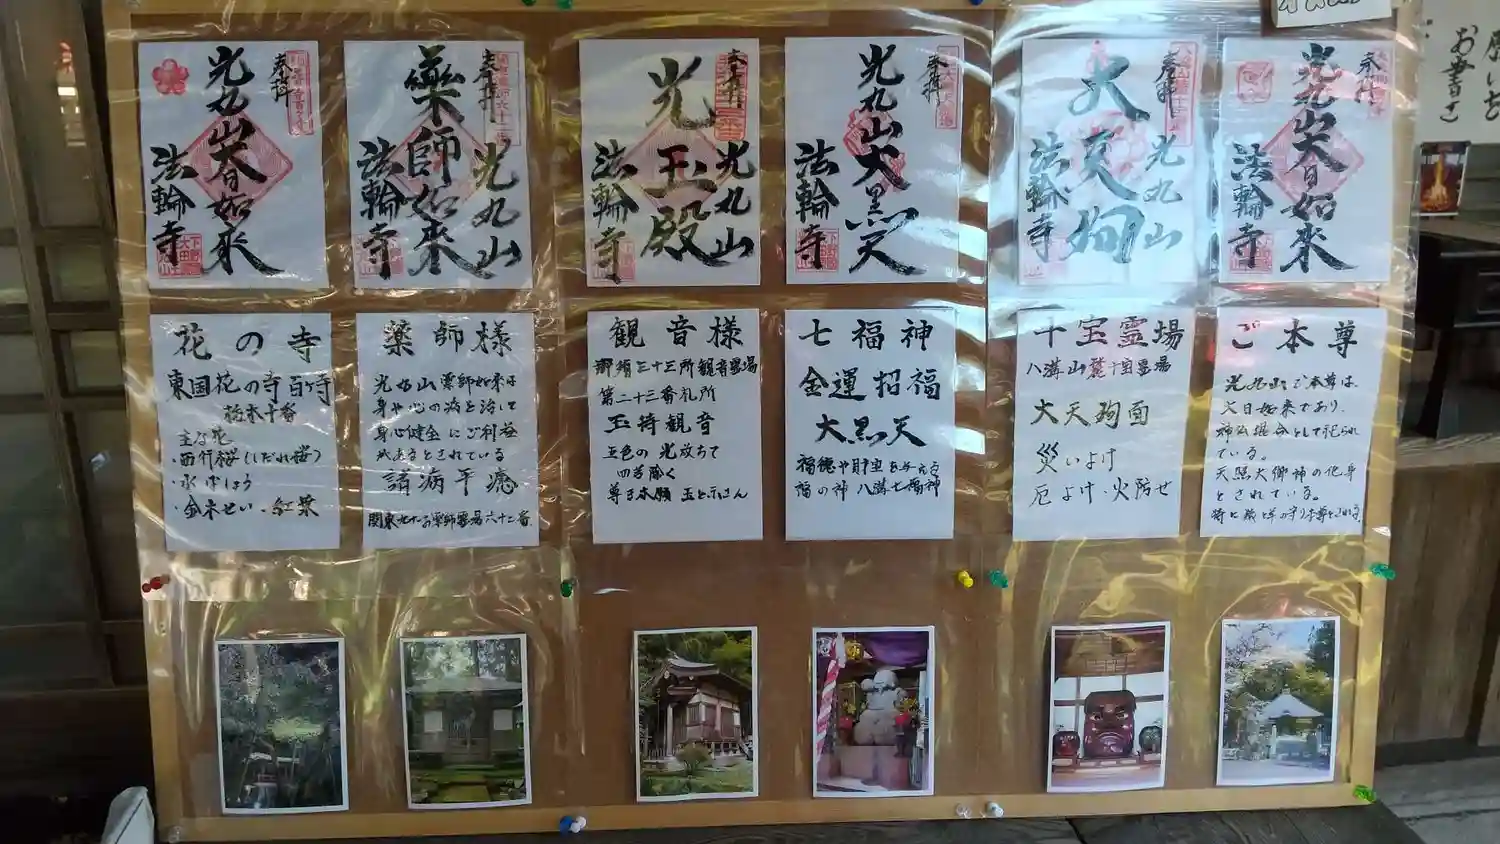 奉拝
光丸山大日如来
法輪寺
奉拝
薬師如来
光丸山
法輪寺
奉拝
光丸山
光玉殿
法輪寺
奉拝
光丸山大黒天
法輪寺
奉拝
光丸山
大天狗
法輪寺
奉拝
光丸山大日如来
法輪寺
花の寺
東国花の寺百ヶ寺
栃木十番
主な花
・西行桜(しだれ桜)
・水ばしょう
・金木せい・紅葉
薬師様
光丸山薬師如来は
身や心の病を治して
身心健全にご利益
があるとされている
諸病平癒
観音様
那須三十三所観音霊場
第二十三番札所
玉持観音
五色の光放ちて
七福神
金運招福
大黒天
福徳や財宝を与える
福の神 八溝七福神
十宝霊場
八溝山麓十宝霊場
大天狗面
災いよけ
厄よけ・火防せ
ご本尊
光丸山ご本尊は、
大日如来であり、
神仏混合として祀られ
ている。
天照大御神の化身
とされている。
お書き